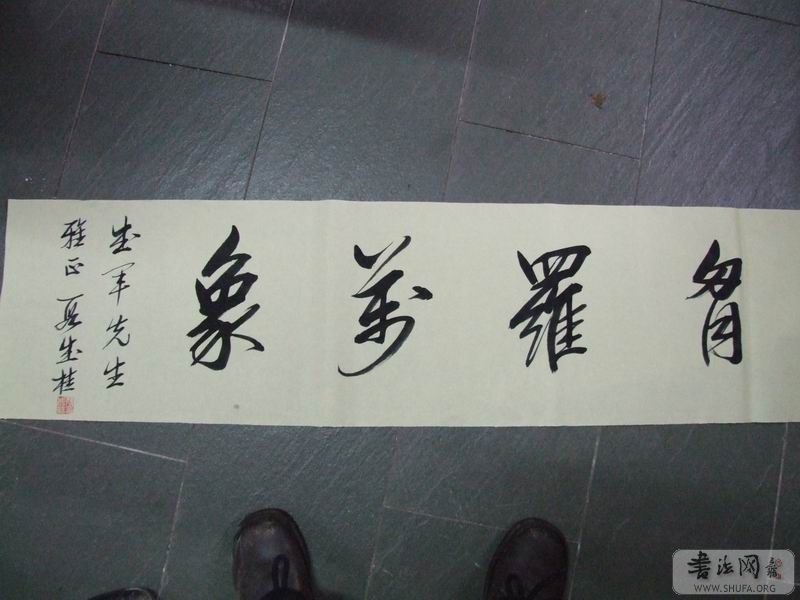 胷羅萬象
军先生
雅正 桂
書法网
WWW.SHUFA.ORG